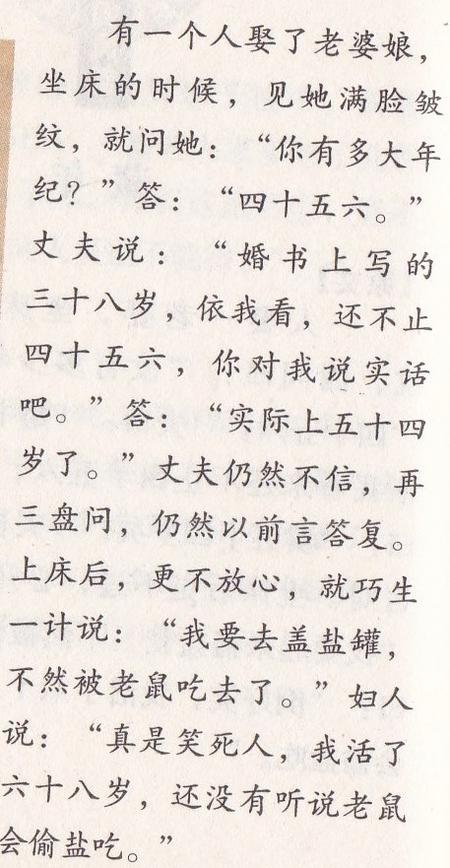 有一个人娶了老婆娘，
坐床的时候，见她满脸皱
纹，就问她：“你有多大年
纪？”答：“四十五六。”
丈夫说：“婚书上写的
三十八岁，依我看，还不止
四十五六，你对我说实话
吧。”答：“实际上五十四
岁了。”丈夫仍然不信，再
三盘问，仍然以前言答复。
上床后，更不放心，就巧生
一计说：“我要去盖盐罐，
不然被老鼠吃去了。”妇人
说：“真是笑死人，我活了
六十八岁，还没有听说老鼠
会偷盐吃。”